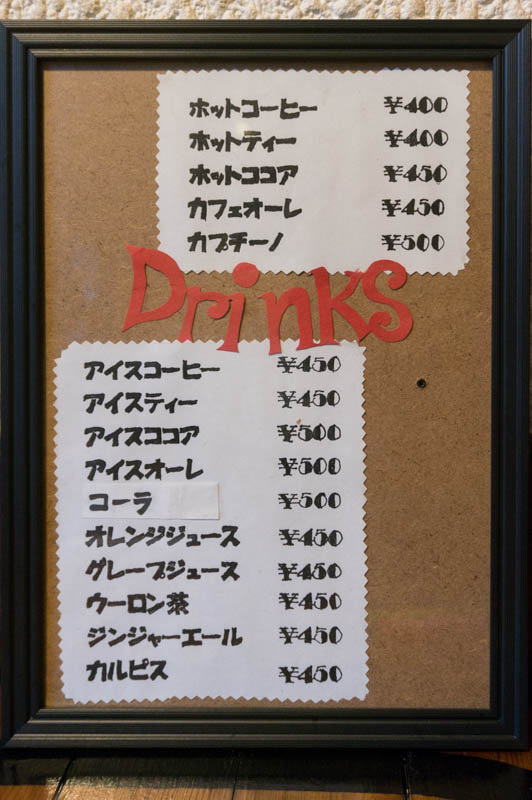 ホットコーヒー ¥400
ホットティー ¥400
ホットココア ¥450
カフェオーレ ¥450
カプチーノ ¥500
Drinks
アイスコーヒー ¥450
アイスティー ¥450
アイスココア ¥500
アイスオーレ ¥500
コーラ ¥500
オレンジジュース ¥450
グレープジュース ¥450
ウーロン茶 ¥450
ジンジャーエール ¥450
カルピス ¥450